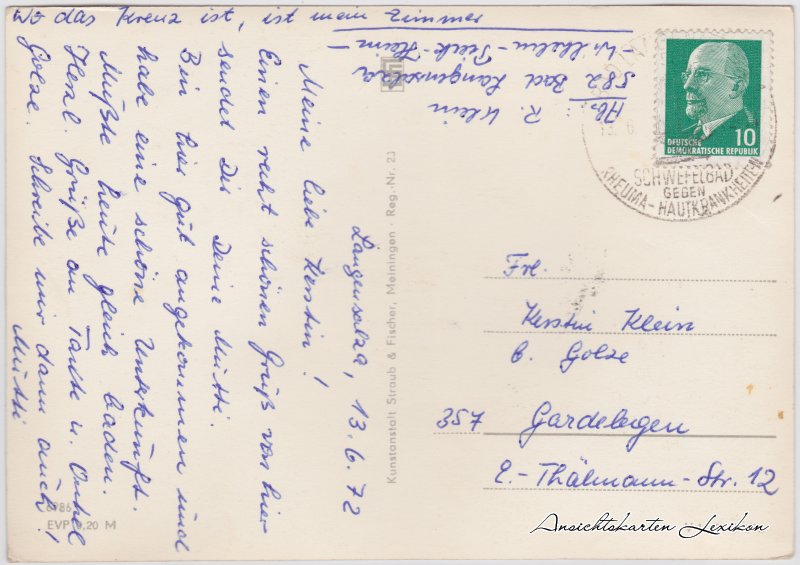 Wo das Kreuz ist, ist mein Zimmer
Abs.: R. Klein
582 Bad Langensalza
- Wilhelm-Pieck-Heim -
Langensalza, 13.6.72
Meine liebe Kerstin!
Einen recht schönen Gruß von hier
sendet Dir Deine Mutti.
Bin hier gut angekommen und
habe eine schöne Unterkunft.
Mußte heute gleich baden.
Herzl. Grüße an Tante u. Onkel
Golze. Schreibe mir dann auch!
Mutti
6986
EVP 0,20 M
Kunstanstalt Straub & Fischer, Meiningen · Reg.-Nr. 23
10
DEUTSCHE
DEMOKRATISCHE REPUBLIK
SCHWEFELBAD
GEGEN
RHEUMA - HAUTKRANKHEITEN
Frl.
Kerstin Klein
b. Golze
357 Gardelegen
E.-Thälmann-Str. 12
Ansichtskarten Lexikon